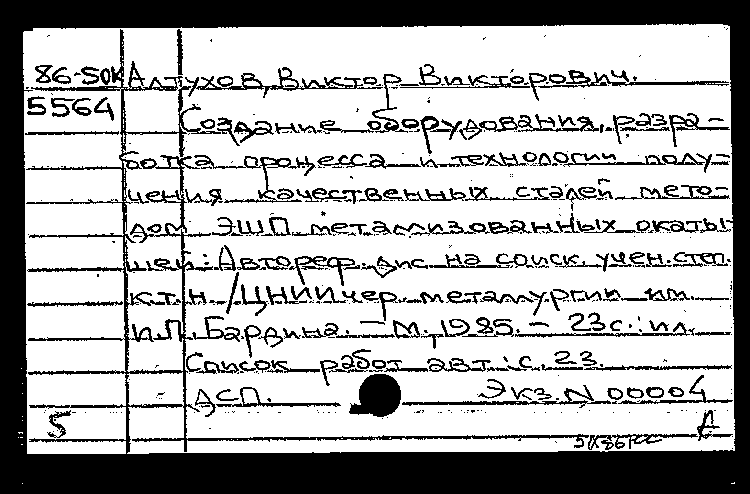 86-50К Алтухов, Виктор Викторович.
5564 Создание оборудования, разра-
ботка процесса и технологии полу-
чения качественных сталей мето-
дом ЭШП металлизованных окаты-
шей: Автореф. дис. на соиск. учен. степ.
к.т.н. /ЦНИИчер. металлургии им.
И.П. Бардина. – М., 1985. – 23 с.: ил.
Список работ авт.: с. 23.
ДСП. Экз. N 00004
5 А